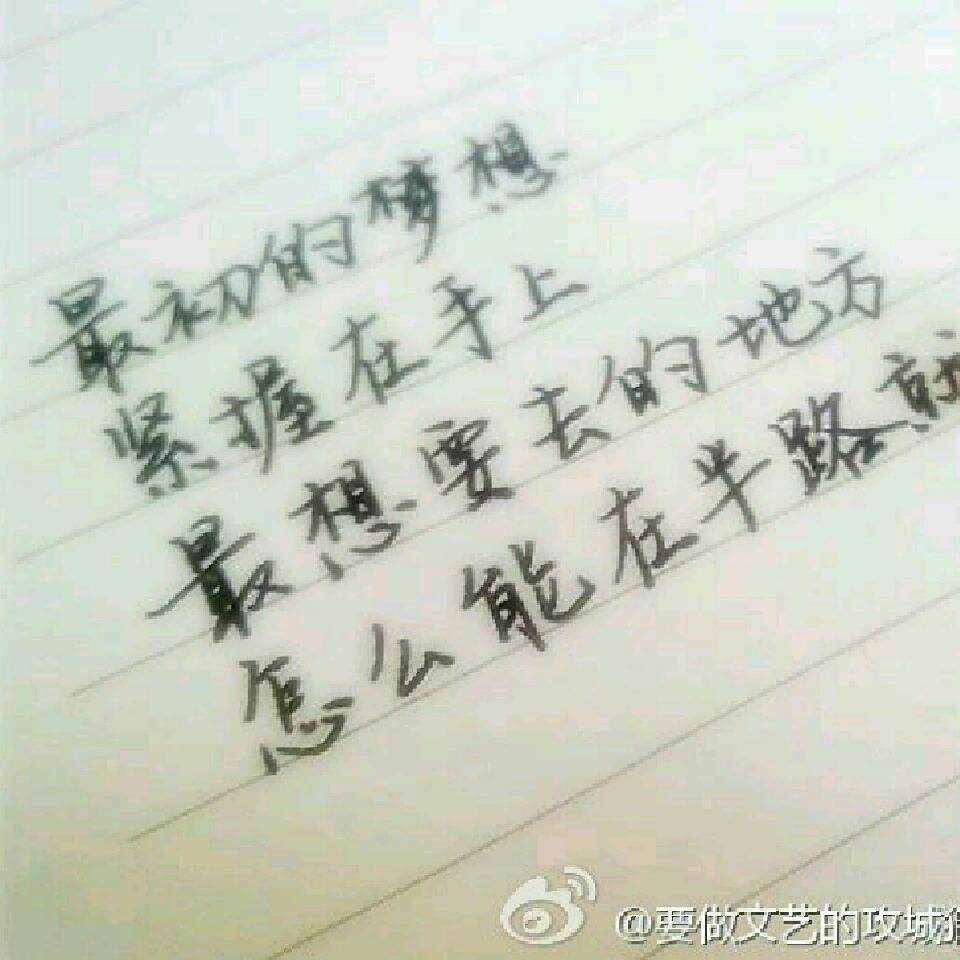 最初的梦想
紧握在手上
最想要去的地方
怎么能在半路就
@要做文艺的攻城